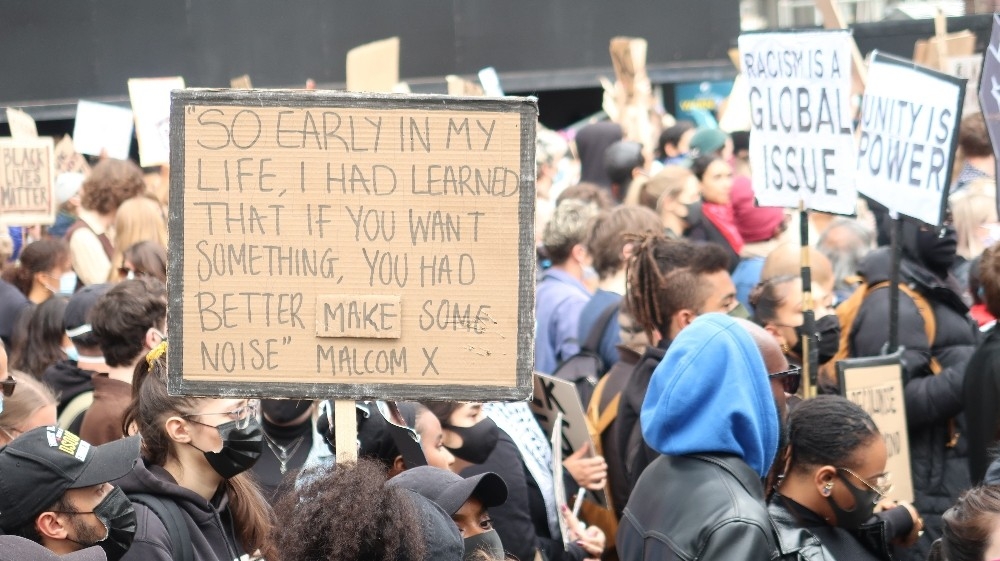 "SO EARLY IN MY
LIFE, I HAD LEARNED
THAT IF YOU WANT
SOMETHING, YOU HAD
BETTER MAKE SOME
NOISE" MALCOM X
RACISM IS A
GLOBAL
ISSUE
UNITY IS
POWER
BLACK
LIVES
MATTER